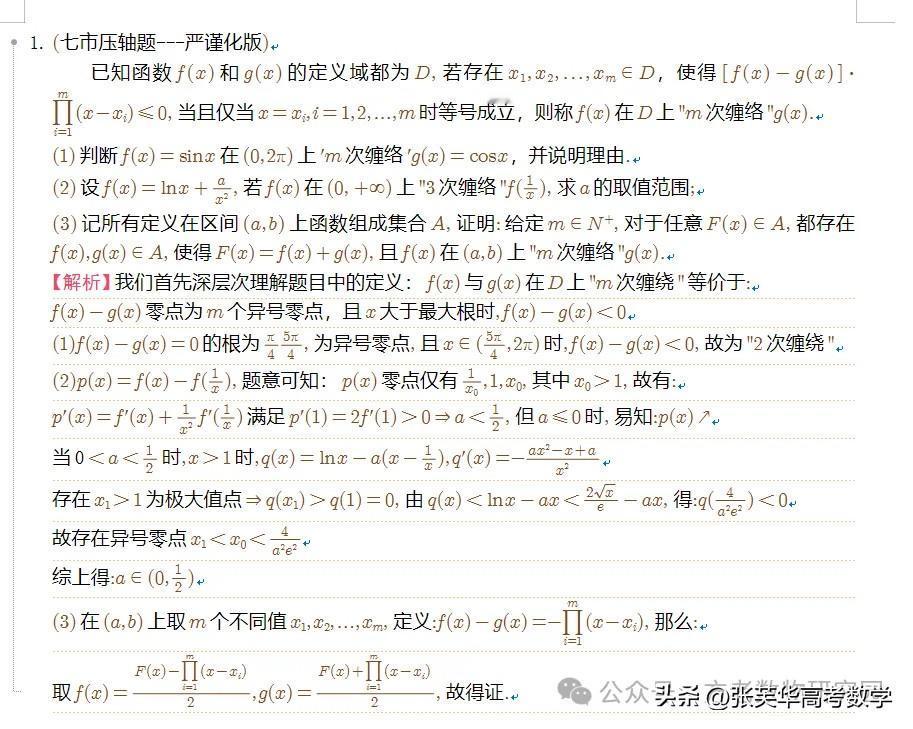 1. (七市压轴题---严谨化版)
已知函数 f(x) 和 g(x) 的定义域都为 D, 若存在 x₁,x₂,…,xₘ∈D, 使得 [f(x)−g(x)]·
∏_{i=1}^{m}(x−xᵢ)≤0, 当且仅当 x=xᵢ,i=1,2,…,m 时等号成立, 则称 f(x) 在 D 上 "m 次缠络 "g(x).
(1) 判断 f(x)=sinx 在 (0,2π) 上 'm 次缠络 'g(x)=cosx, 并说明理由.
(2) 设 f(x)=lnx+a/x², 若 f(x) 在 (0,+∞) 上 "3 次缠络 "f(1/x), 求 a 的取值范围;
(3) 记所有定义在区间 (a,b) 上函数组成集合 A, 证明: 给定 m∈N⁺, 对于任意 F(x)∈A, 都存在
f(x),g(x)∈A, 使得 F(x)=f(x)+g(x), 且 f(x) 在 (a,b) 上 "m 次缠络 "g(x).
【解析】我们首先深层次理解题目中的定义: f(x) 与 g(x) 在 D 上 "m 次缠绕 " 等价于:
f(x)−g(x) 零点为 m 个异号零点, 且 x 大于最大根时,f(x)−g(x)<0
(1)f(x)−g(x)=0 的根为 π/4 5π/4, 为异号零点, 且 x∈(5π/4,2π) 时,f(x)−g(x)<0, 故为 "2 次缠绕 "
(2)p(x)=f(x)−f(1/x), 题意可知: p(x) 零点仅有 1/x₀,1,x₀, 其中 x₀>1, 故有:
p′(x)=f′(x)+1/x² f′(1/x) 满足 p′(1)=2f′(1)>0⇒a<1/2, 但 a≤0 时, 易知:p(x)↗
当 0<a<1/2 时,x>1 时,q(x)=lnx−a(x−1/x),q′(x)=−(ax²−x+a)/x²
存在 x₁>1 为极大值点⇒q(x₁)>q(1)=0, 由 q(x)<lnx−ax<2√x/e−ax, 得:q(4/(a²e²))<0
故存在异号零点 x₁<x₀<4/(a²e²)
综上得:a∈(0,1/2)
(3) 在 (a,b) 上取 m 个不同值 x₁,x₂,…,xₘ, 定义:f(x)−g(x)=−∏_{i=1}^{m}(x−xᵢ), 那么:
取 f(x)=(F(x)−∏_{i=1}^{m}(x−xᵢ))/2,g(x)=(F(x)+∏_{i=1}^{m}(x−xᵢ))/2, 故得证.
头条 @张芙华高考数学